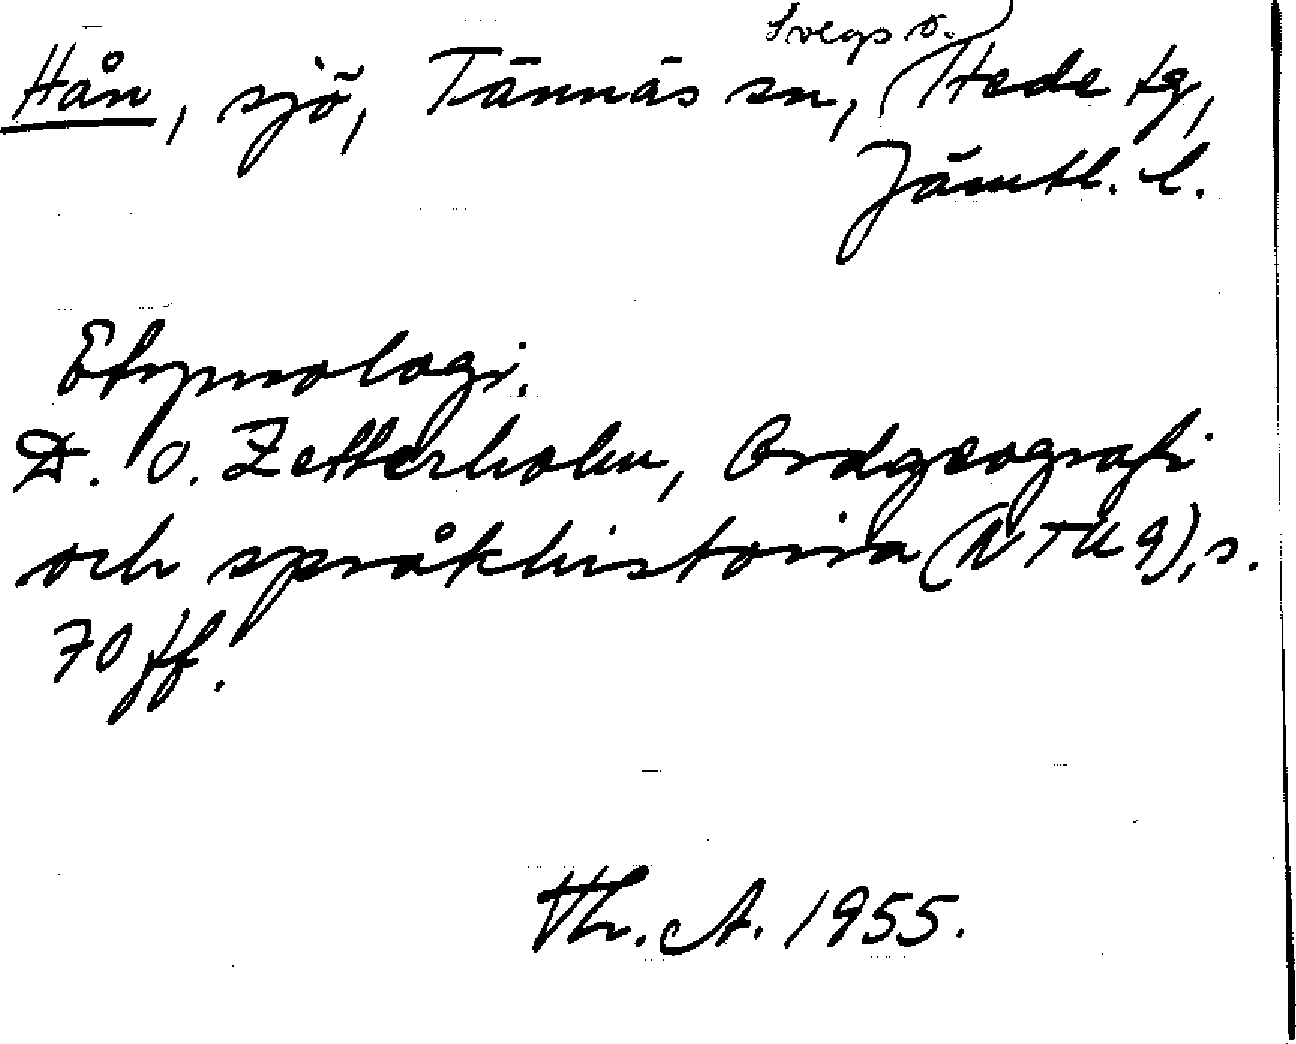 Svegs o.
Hån, sjö, Tännäs sn, (Hede tg,
Jämtl. l.
Etymologi.
D. O. Zetterholm, Ordgeografi
och språkhistoria (NTU 9), s.
70 ff.
Th. A. 1955.